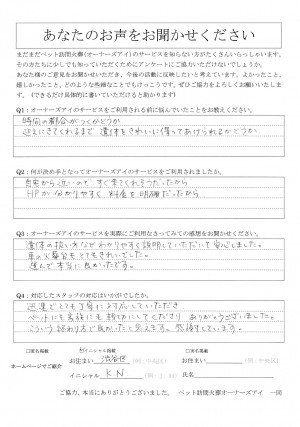 あなたのお声をお聞かせください
まだまだペット訪問火葬(オーナーズアイ)のサービスを知らない方がたくさんいらっしゃいます。
その方たちに少しでも知っていただくためにアンケートにご協力いただけないでしょうか。
あなた様のご意見をお聞かせいただき、今後の活動に反映したいと考えています。よかったこと、
嬉しかったこと、どのような些細なことでもけっこうです。ぜひご協力をよろしくお願いいたします。
(できるだけ具体的に書いていただけると助かります)
Q1：オーナーズアイのサービスをご利用される前に悩んでいたことをお教えください。
時間の都合がつくかどうか
迎えにきてくれるまで 遺体をきれいに保ってあげられるかどうか
Q2：何が決め手となってオーナーズアイのサービスをご利用されましたか。
自宅から近いので すぐ来てくれそうだったから
HPが分かりやすく、料金も明確だったから
Q3：オーナーズアイのサービスを実際にご利用なさってみての感想をお聞かせください。
遺体の扱い方などわかりやすく説明していただいて安心しました。
車の火葬台もとてもきれいでした。
選んで本当に良かったです。
Q4：対応したスタッフの対応はいかがでしたか。
迅速でとても丁寧に対応していただき
ペットにも家族にも親切にしてくださり ありがとうございました。
感謝しています。
ホームページでご紹介
□実名掲載
イニシャル掲載
お住まい 渋谷区 (例:中央区)
イニシャル K N
□匿名掲載
お住まい (例:中央区)
氏名
ご協力、本当にありがとうございました。 ペット訪問火葬オーナーズアイ 一同